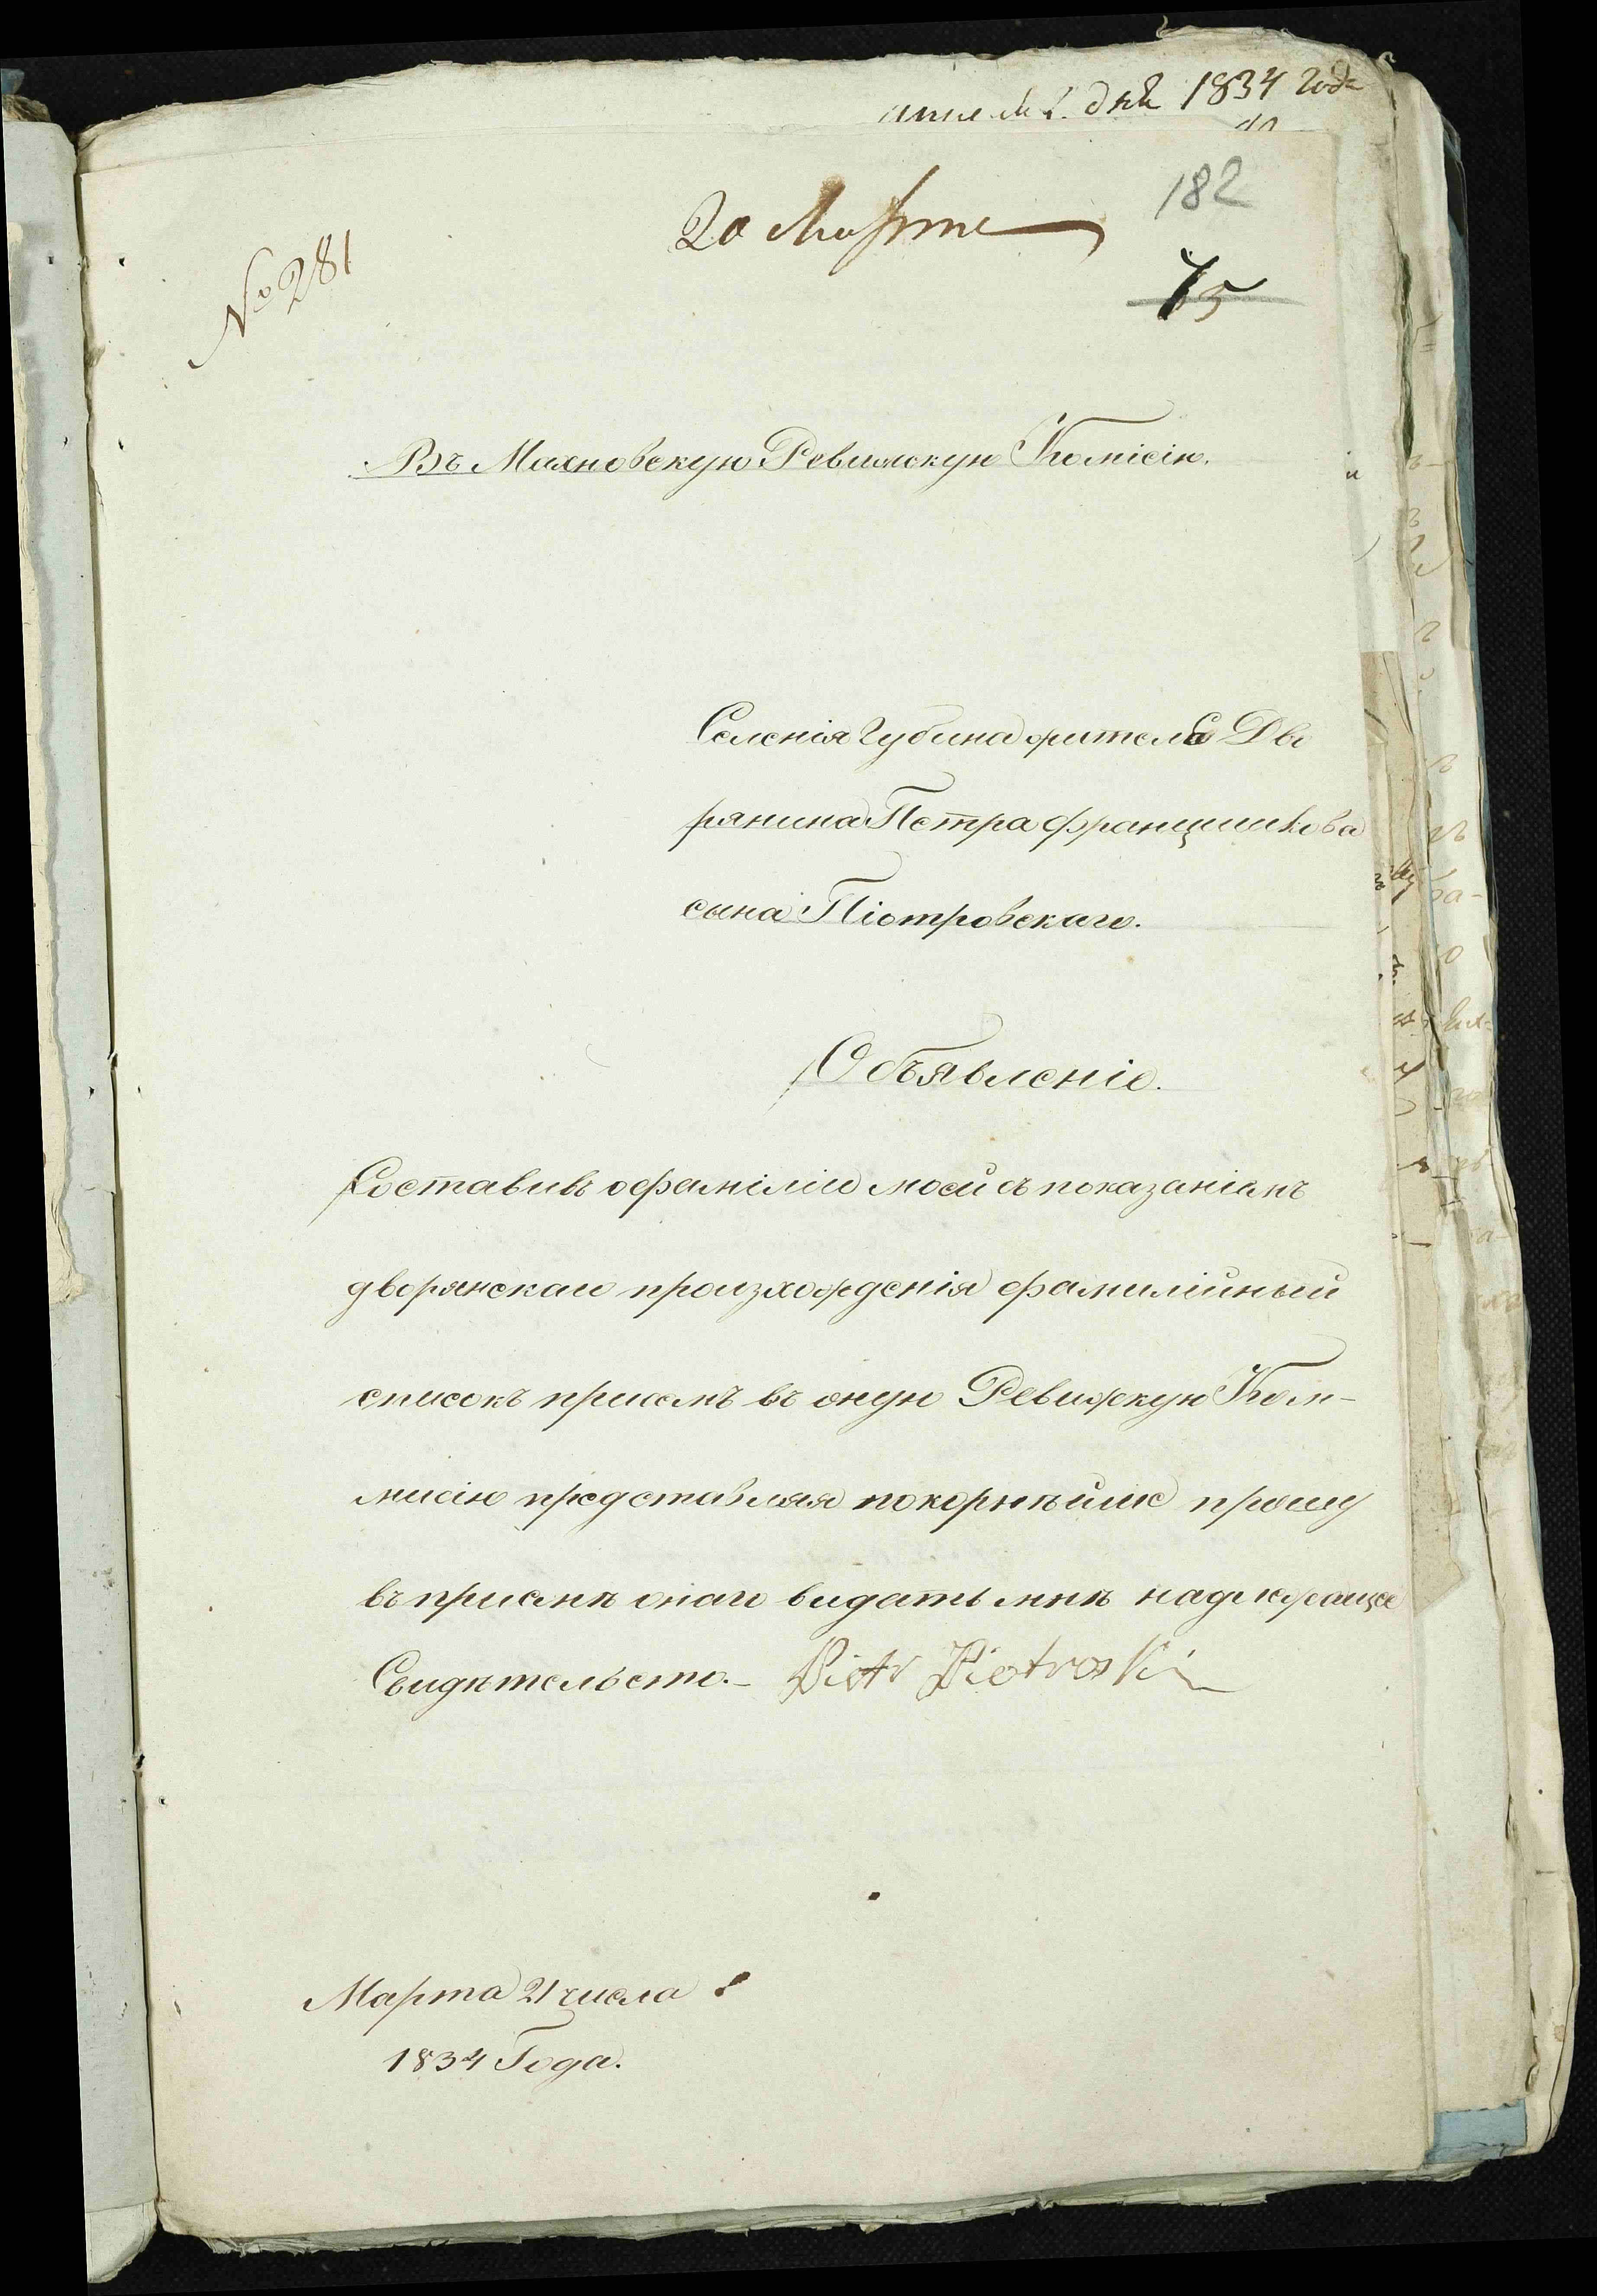 дня 1834 года
182
20 Марта
75
№ 281
Въ Махновскую Ревизскую Комісію.
Селенія Губина жителя Дво
рянина Петра Францишкова
сына Піотровскаго.
Объявленіе.
Составивъ о фаміліи моей съ показаніемъ
дворянскаго произхожденія фамилійный
списокъ присемъ въ оную Ревижскую Ком-
мисію представляя покорнѣйше прошу
въ приемѣ онаго видать мнѣ надлежащее
Свидѣтельсто.- Piotr Piotroski
Марта 21 числа
1834 Года.